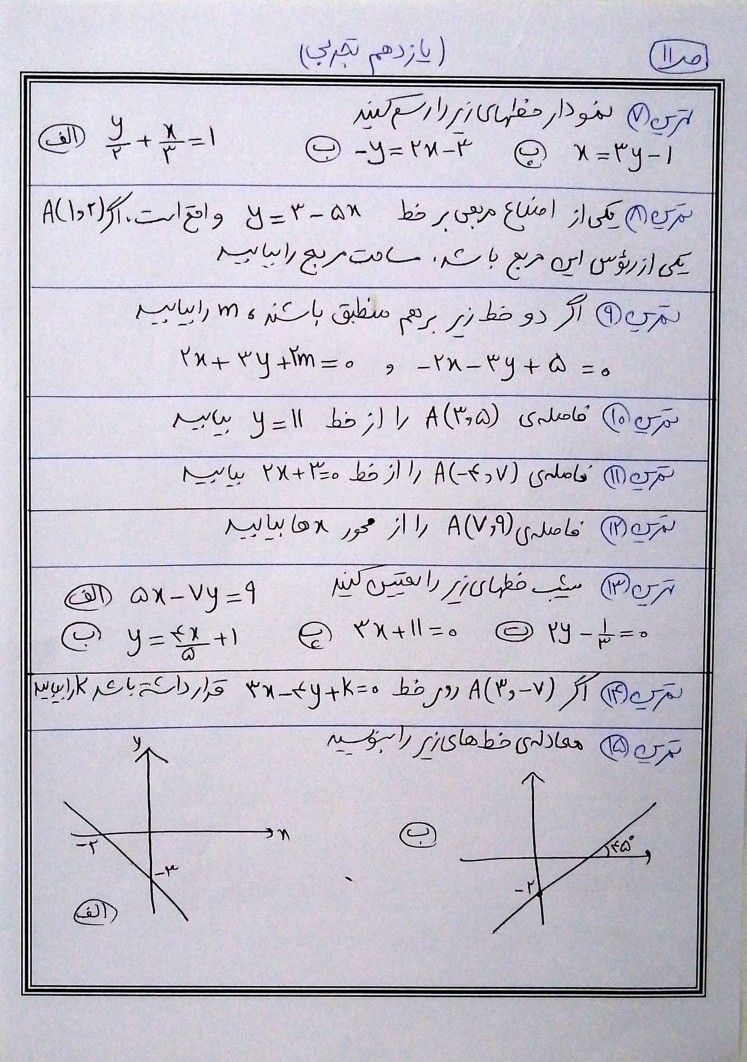 صـ ۱۱
(یازدهم تجربی)
تمرین ۷) نمودار خطهای زیر را رسم کنید
الف) y/۲ + x/۳ = ۱
ب) -y = ۲x - ۳ پ) x = ۳y - ۱
تمرین ۸) یکی از اضلاع مربعی بر خط y = ۳ - ۵x واقع است. اگر A(۱,۲)
یکی از رئوس این مربع باشد، مساحت مربع را بیابید
تمرین ۹) اگر دو خط زیر بر هم منطبق باشند، m را بیابید
۲x + ۳y + ۲m = ۰ و -۲x - ۳y + ۵ = ۰
تمرین ۱۰) فاصله‌ی A(۳,۵) را از خط y = ۱۱ بیابید
تمرین ۱۱) فاصله‌ی A(-۴,۷) را از خط ۲x + ۳ = ۰ بیابید
تمرین ۱۲) فاصله‌ی A(۷,۹) را از محور xها بیابید
تمرین ۱۳) شیب خطهای زیر را تعیین کنید الف) ۵x - ۷y = ۹
ب) y = ۴x/۵ + ۱ پ) ۳x + ۱۱ = ۰ ت) ۲y - ۱/۳ = ۰
تمرین ۱۴) اگر A(۳,-۷) روی خط ۳x - ۴y + k = ۰ قرار داشته باشد k را بیابید
تمرین ۱۵) معادله‌ی خط های زیر را بنویسید
y
x
-۲
-۳
الف
ب
۴۵°
-۲